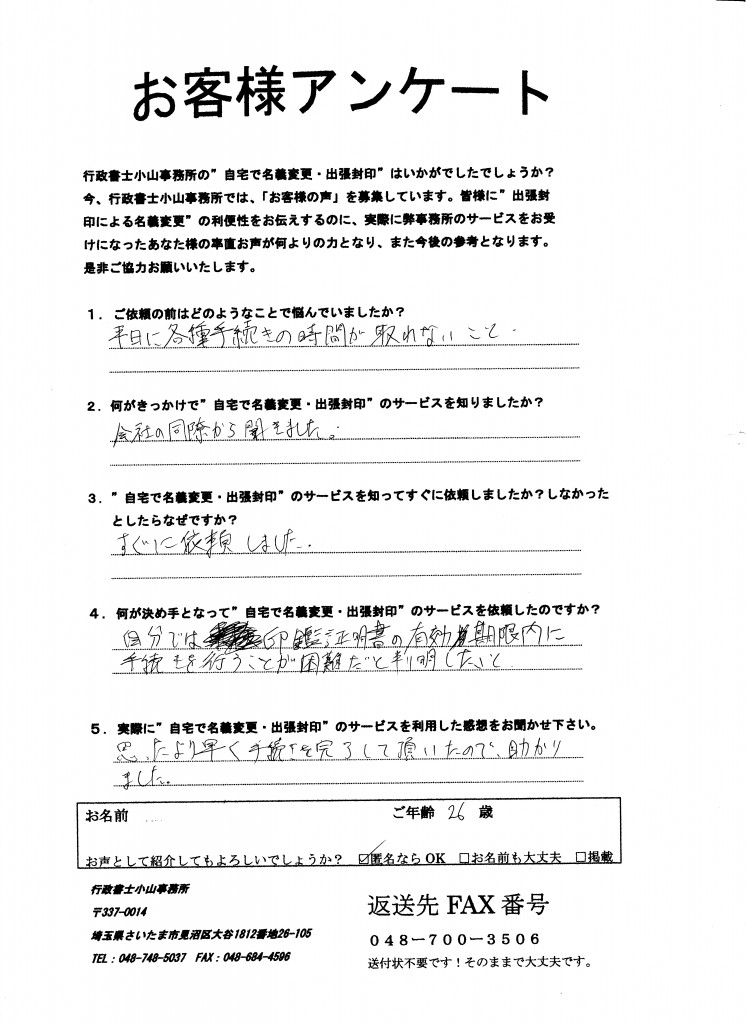 お客様アンケート
行政書士小山事務所の”自宅で名義変更・出張封印”はいかがでしたでしょうか？
今、行政書士小山事務所では、「お客様の声」を募集しています。皆様に”出張封
印による名義変更”の利便性をお伝えするのに、実際に弊事務所のサービスをお受
けになったあなた様の率直お声が何よりの力となり、また今後の参考となります。
是非ご協力お願いいたします。
１．ご依頼の前はどのようなことで悩んでいましたか？
平日に各種手続きの時間が取れないこと．
２．何がきっかけで”自宅で名義変更・出張封印”のサービスを知りましたか？
会社の同僚から聞きました。
３．”自宅で名義変更・出張封印”のサービスを知ってすぐに依頼しましたか？しなかった
としたらなぜですか？
すぐに依頼しました．
４．何が決め手となって”自宅で名義変更・出張封印”のサービスを依頼したのですか？
自分では印鑑証明書の有効期限内に
手続きを行うことが困難だと判明したこと
５．実際に”自宅で名義変更・出張封印”のサービスを利用した感想をお聞かせ下さい。
思ったより早く手続きを完了して頂いたので、助かり
ました。
お名前 ご年齢 26 歳
お声として紹介してもよろしいでしょうか？ ☑匿名なら OK □お名前も大丈夫 □掲載
行政書士小山事務所
〒337-0014
埼玉県さいたま市見沼区大谷1812番地26-105
TEL：048-748-5037 FAX：048-684-4596
返送先 FAX 番号
０４８－７００－３５０６
送付状不要です！そのままで大丈夫です。